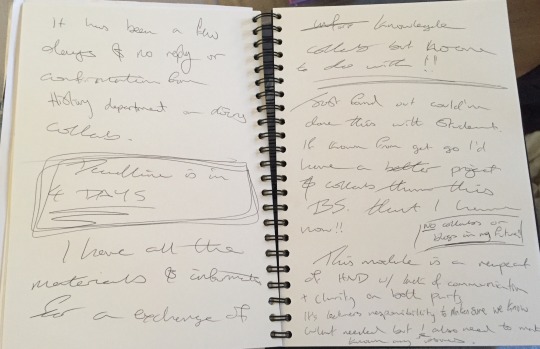 It has been a few
days & no reply or
confrontation from
History department on doing
collab.
Deadline is in
4 DAYS
I have all the
materials & information
for a exchange of
knowledge
collab but no one
to do with!!
Just found out could'm
done this with students.
If known from get go I'd
have a better project
& collab than this
BS. that I have
now!!
No collabs or
in my future!!
This module is a repeat
of HND w/ lack of communication
+ clarity on both party
It's teachers responsibility to make sure we know
what needed but I also need to make
known my